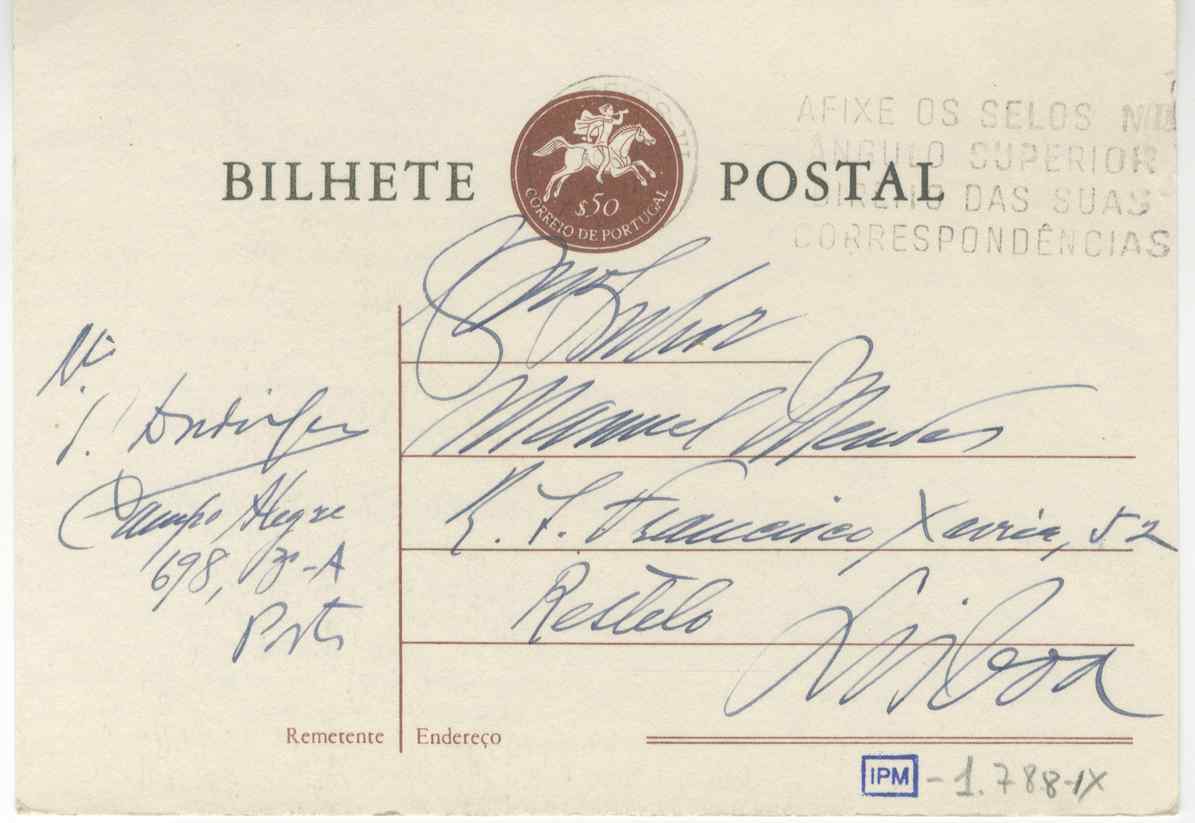 BILHETE POSTAL
$50
CORREIO DE PORTUGAL
AFIXE OS SELOS NO
ÂNGULO SUPERIOR
DIREITO DAS SUAS
CORRESPONDÊNCIAS
Senhor
Manuel Mendes
R. S. Francisco Xavier, 52
Restelo Lisboa
Campo Alegre
698, 3º-A
Porto
Remetente
Endereço
IPM - 1.788-IX